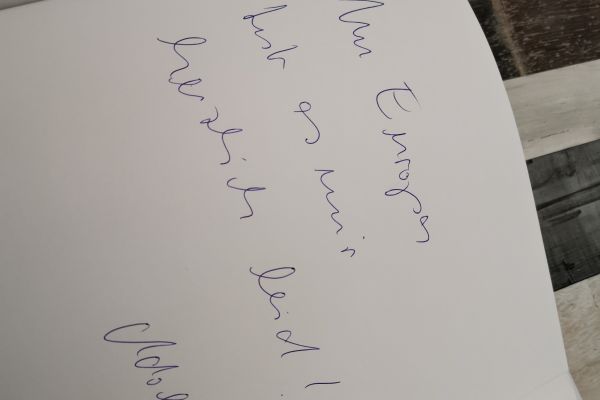 Um Europa
tut es mir
herzlich leid!